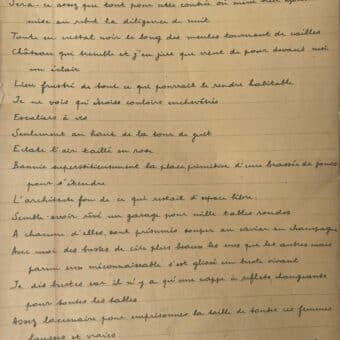 que tout pour cette contrée où mène
mise au rebut la diligence de nuit
Toute en cristal noir le long des meules tournant de cailles
Château qui tremble et j'en jure que vient de poser devant moi
un éclair
Lieu frustré de tout ce qui pourrait le rendre habitable
Je ne vois qu'étroits couloirs enchevêtrés
Escaliers à vis
Seulement au haut de la tour de guet
Eclate l'air taillé en rose
Bannie superstitieusement la place primitive d'une brassée de joncs
pour s'étendre
L'architecte fou de ce qui restait d'espace libre
Semble avoir rêvé un garage pour mille tables rondes
A chacune d'elles sont présumés souper au caviar au champagne
Avec moi des bustes de cire plus beaux les uns que les autres mais
parmi eux méconnaissable s'est glissé un buste vivant
Je dis bustes car il n'y a qu'une nappe à reflets changeants
pour toutes les tables
Assez lacunaire pour emprisonner la taille de toutes ces femmes
fausses et vraies